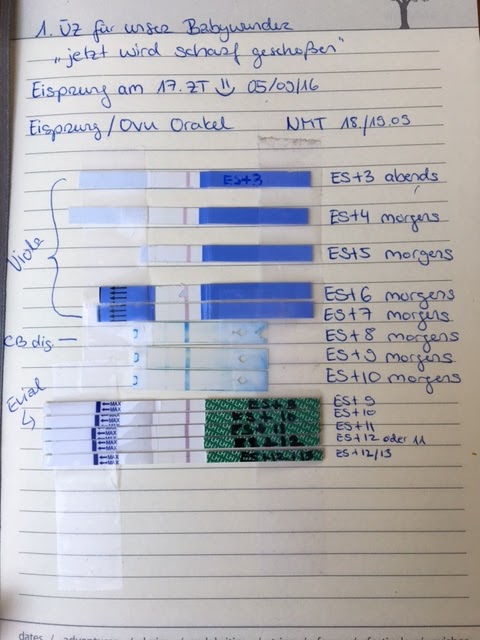 1. ÜZ für unser Babywunder
„jetzt wird scharf geschoßen"
Eisprung am 17. ZT 05/09/16
Eisprung / Ovu Orakel NMT 18./19.09
ES+3 ES+3 abends
ES+4 morgens
ES+5 morgens
Viola
ES+6 morgens
ES+7 morgens
CB dig. — ES+8 morgens
ES+9 morgens
ES+10 morgens
MAX ES+9 ES+9
MAX ES+10 ES+10
MAX ES+11 ES+11
MAX ES+12 ES+12 oder 11
MAX ES+12/13 ES+12/13
dates /